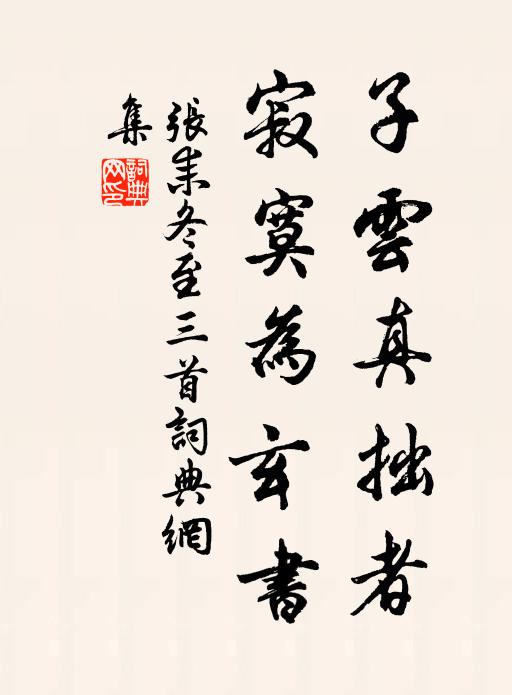 子雲真拙者
寂寞為玄書
張耒冬至三首詞典網
集
詞典
网印